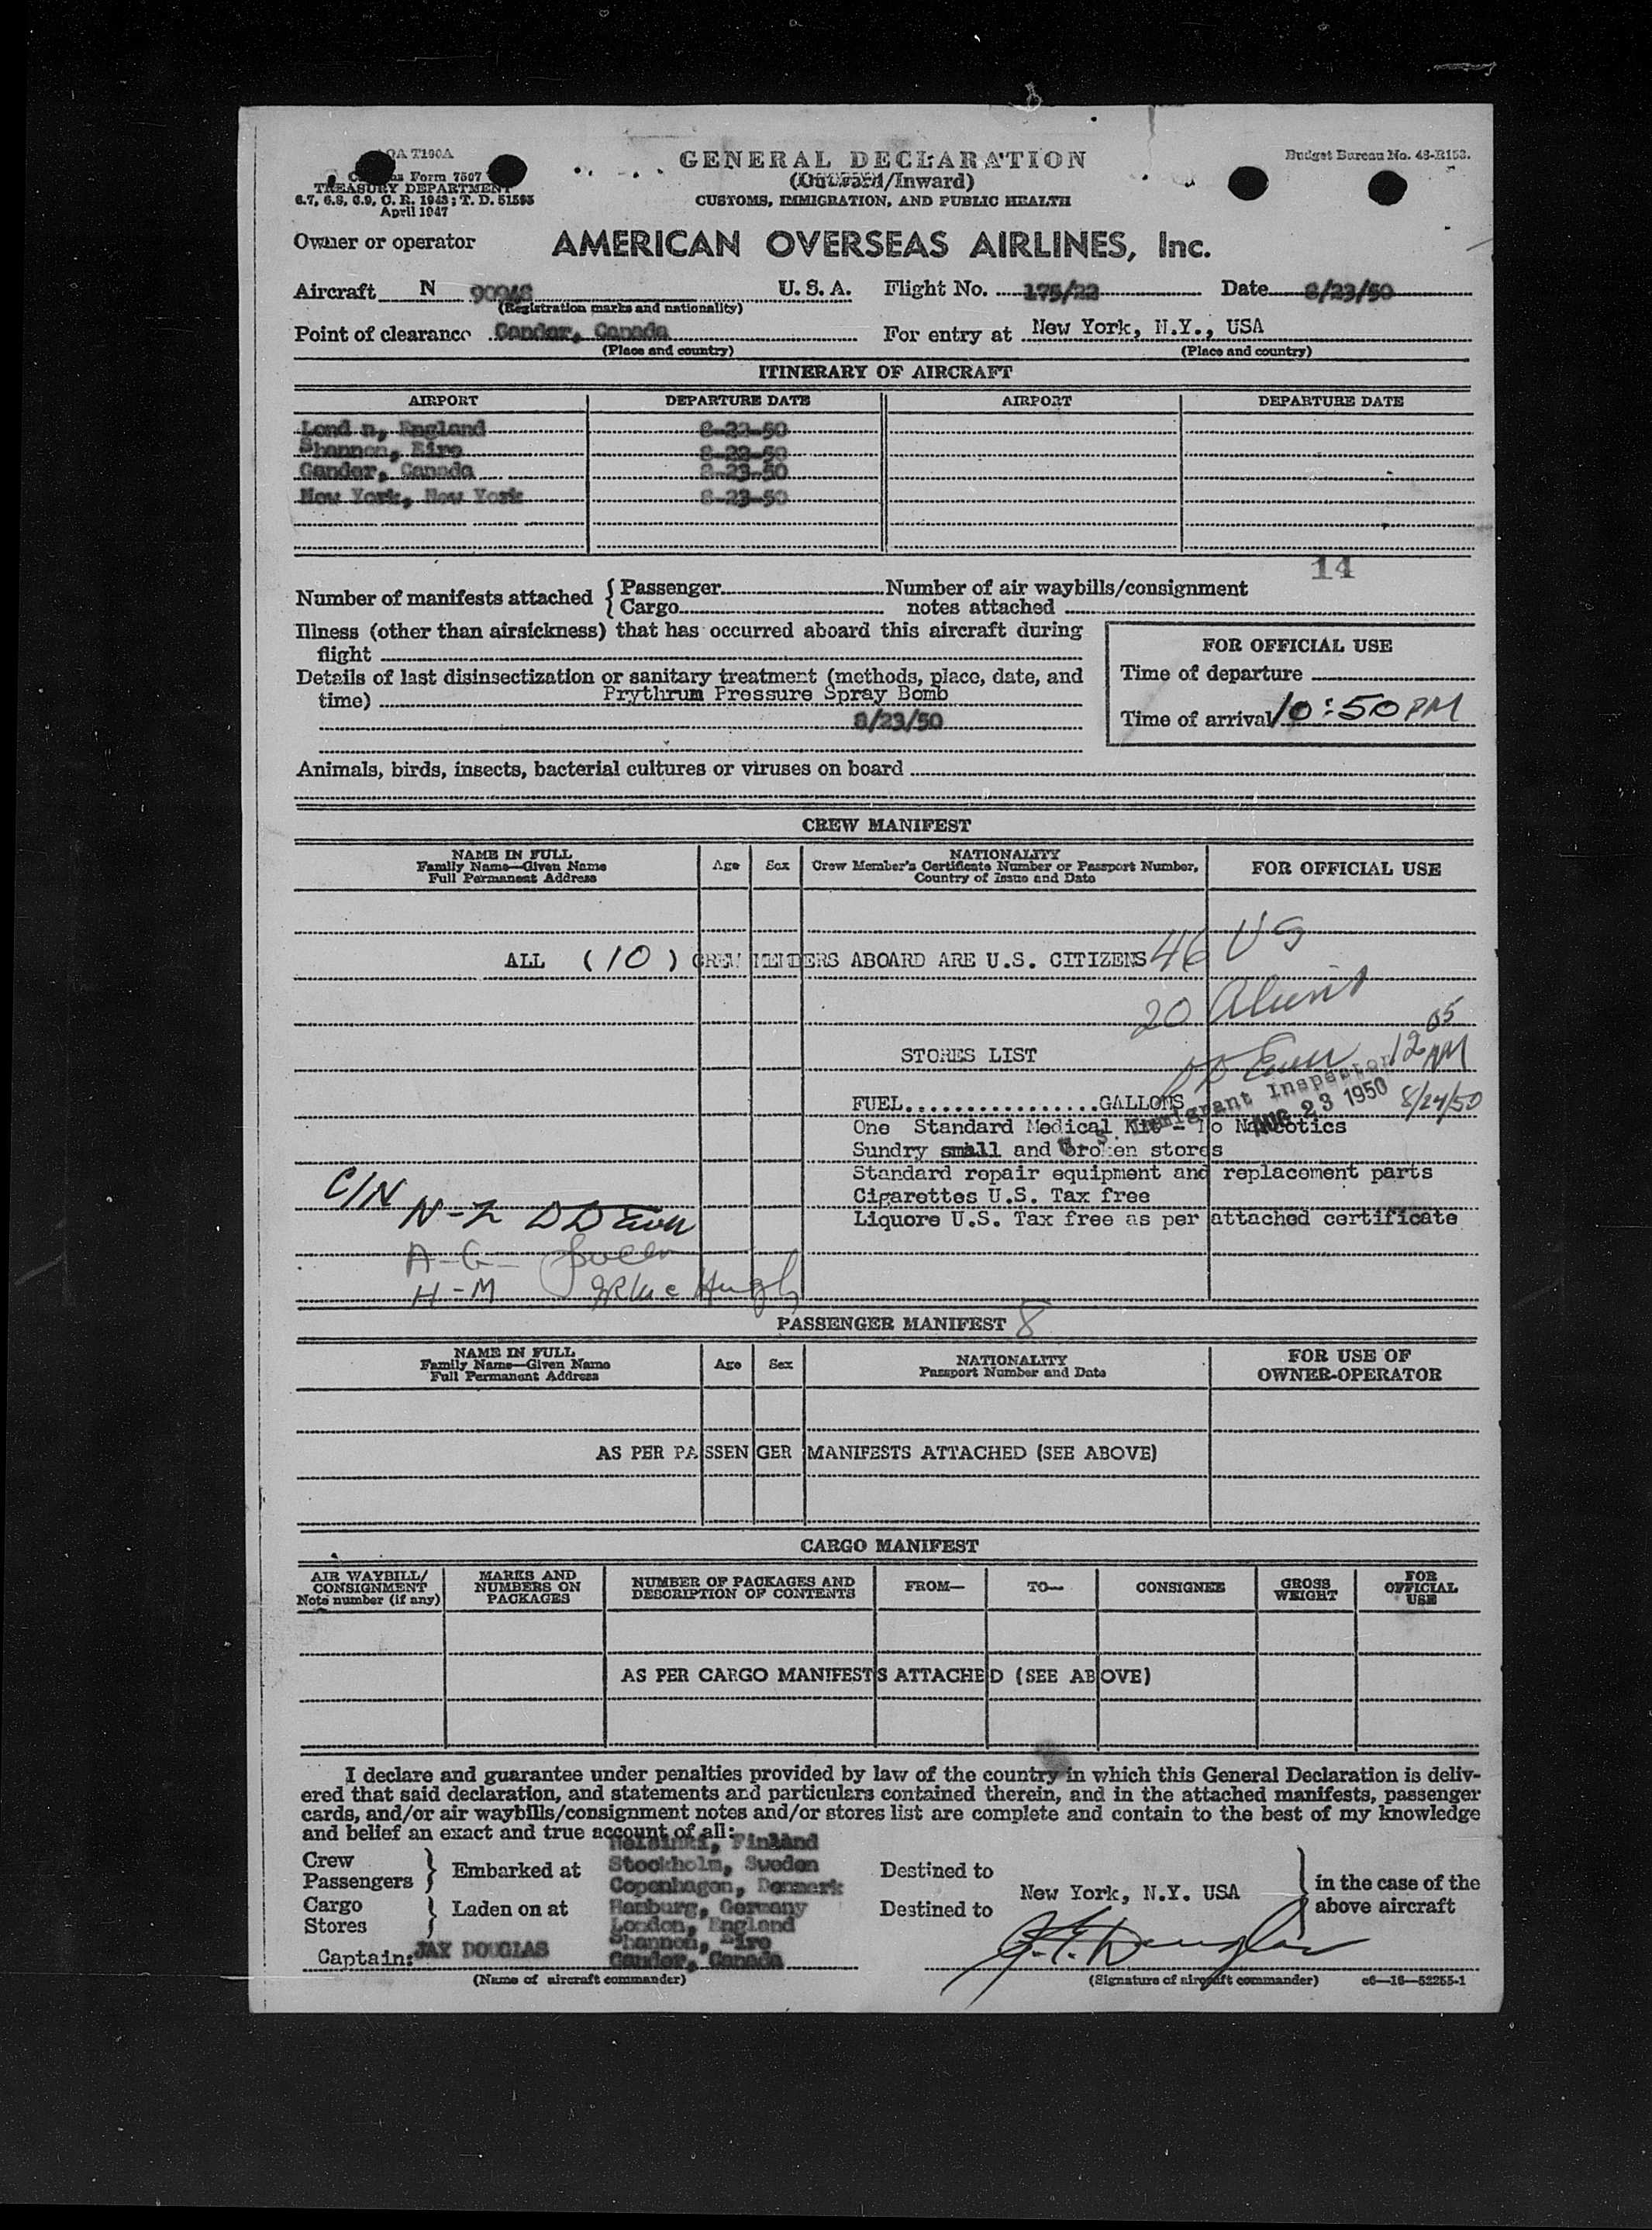 GENERAL DECLARATION
(Outward/Inward)
CUSTOMS, IMMIGRATION, AND PUBLIC HEALTH
Budget Bureau No. 48-R153.
OA T100A
Form 7507
TREASURY DEPARTMENT
6.7, 6.8, 6.9, C. R. 1943; T. D. 51595
April 1947
Owner or operator AMERICAN OVERSEAS AIRLINES, Inc.
Aircraft N 90948 U. S. A. Flight No. 175/22 Date 8/23/50
(Registration marks and nationality)
Point of clearance Gander, Canada For entry at New York, N.Y., USA
(Place and country) (Place and country)
ITINERARY OF AIRCRAFT
AIRPORT DEPARTURE DATE AIRPORT DEPARTURE DATE
Lond n, England 8-22-50
Shannon, Eire 8-22-50
Gander, Canada 8-23-50
New York, New York 8-23-50
14
Number of manifests attached { Passenger Number of air waybills/consignment
Cargo notes attached
Illness (other than airsickness) that has occurred aboard this aircraft during
flight
Details of last disinsectization or sanitary treatment (methods, place, date, and
time) Prythrum Pressure Spray Bomb
8/23/50
FOR OFFICIAL USE
Time of departure
Time of arrival 10:50 PM
Animals, birds, insects, bacterial cultures or viruses on board
CREW MANIFEST
NAME IN FULL
Family Name—Given Name
Full Permanent Address
Age Sex
NATIONALITY
Crew Member's Certificate Number or Passport Number,
Country of Issue and Date
FOR OFFICIAL USE
ALL (10) CREW MEMBERS ABOARD ARE U.S. CITIZENS 46 US
20
STORES LIST
12 05 AM
8/24/50
U. S. Immigrant Inspector
AUG 23 1950
FUEL................GALLONS
One Standard Medical Kit - No Narcotics
Sundry small and Broken stores
Standard repair equipment and replacement parts
Cigarettes U.S. Tax free
Liquore U.S. Tax free as per attached certificate
C/N
N-Z
A-G
H-M McHugh
PASSENGER MANIFEST 8
NAME IN FULL
Family Name—Given Name
Full Permanent Address
Age Sex
NATIONALITY
Passport Number and Date
FOR USE OF
OWNER-OPERATOR
AS PER PASSENGER MANIFESTS ATTACHED (SEE ABOVE)
CARGO MANIFEST
AIR WAYBILL/
CONSIGNMENT
Note number (if any)
MARKS AND
NUMBERS ON
PACKAGES
NUMBER OF PACKAGES AND
DESCRIPTION OF CONTENTS
FROM— TO— CONSIGNEE
GROSS
WEIGHT
FOR
OFFICIAL
USE
AS PER CARGO MANIFESTS ATTACHED (SEE ABOVE)
I declare and guarantee under penalties provided by law of the country in which this General Declaration is deliv-
ered that said declaration, and statements and particulars contained therein, and in the attached manifests, passenger
cards, and/or air waybills/consignment notes and/or stores list are complete and contain to the best of my knowledge
and belief an exact and true account of all:
Crew
Passengers } Embarked at
Cargo
Stores } Laden on at
Helsinki, Finland
Stockholm, Sweden
Copenhagen, Denmark
Hamburg, Germany
London, England
Shannon, Eire
Gander, Canada
Destined to
Destined to
New York, N.Y. USA
in the case of the
above aircraft
Captain: JAX DOUGLAS
(Name of aircraft commander)
J. E. Douglas
(Signature of aircraft commander) c6—16—52255-1